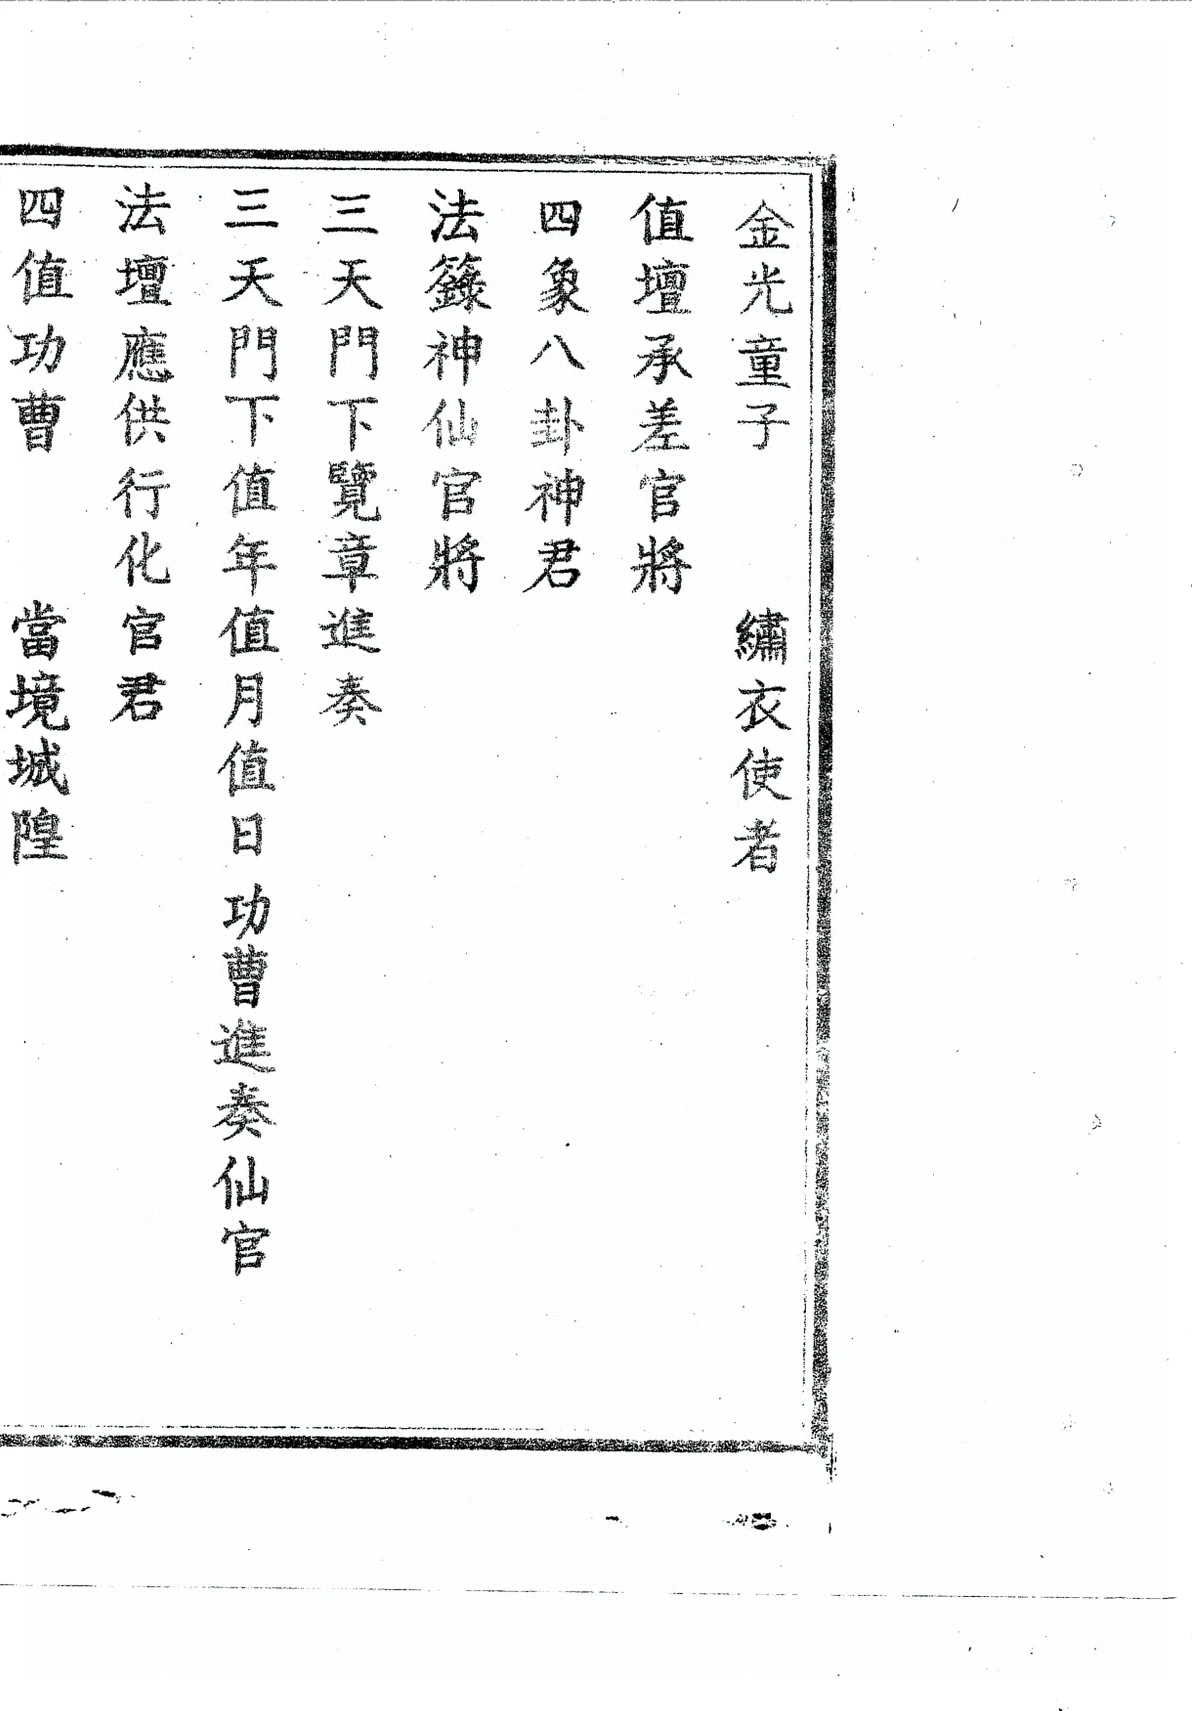 金光童子　繡衣使者
值壇承差官將
四象八卦神君
法籙神仙官將
三天門下覽章進奏
三天門下值年值月值日功曹進奏仙官
法壇應供行化官君
四值功曹　當境城隍